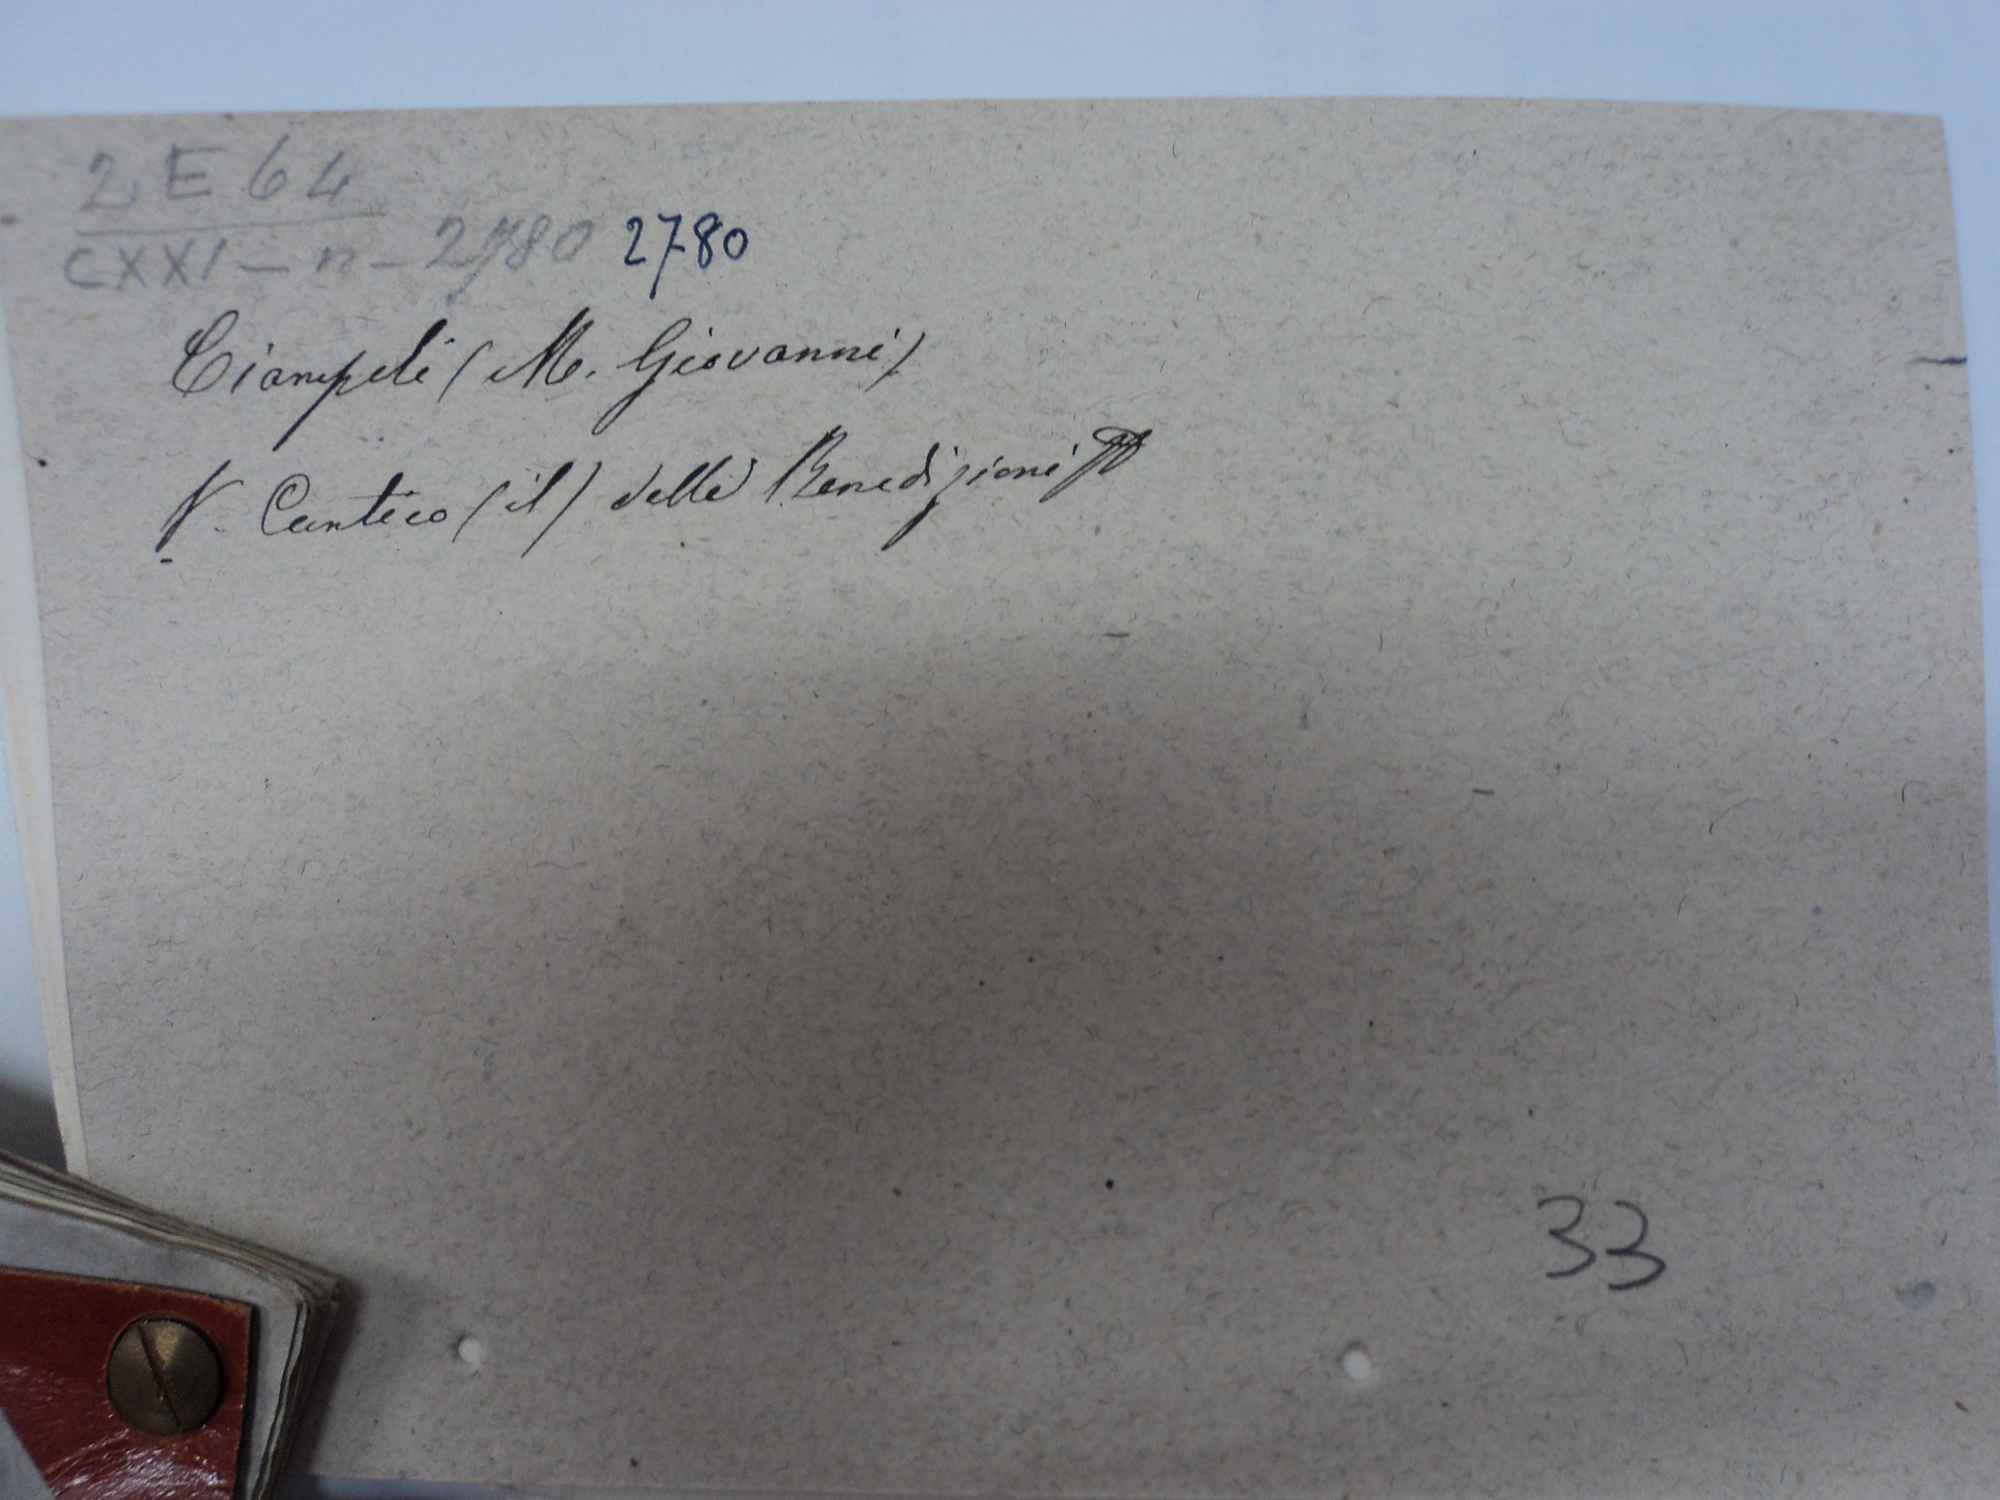 2 E 64
CXXI - n - 2780 2780
Ciampeli (M. Giovanni)
V. Cantico (il) delle Benedizioni
33